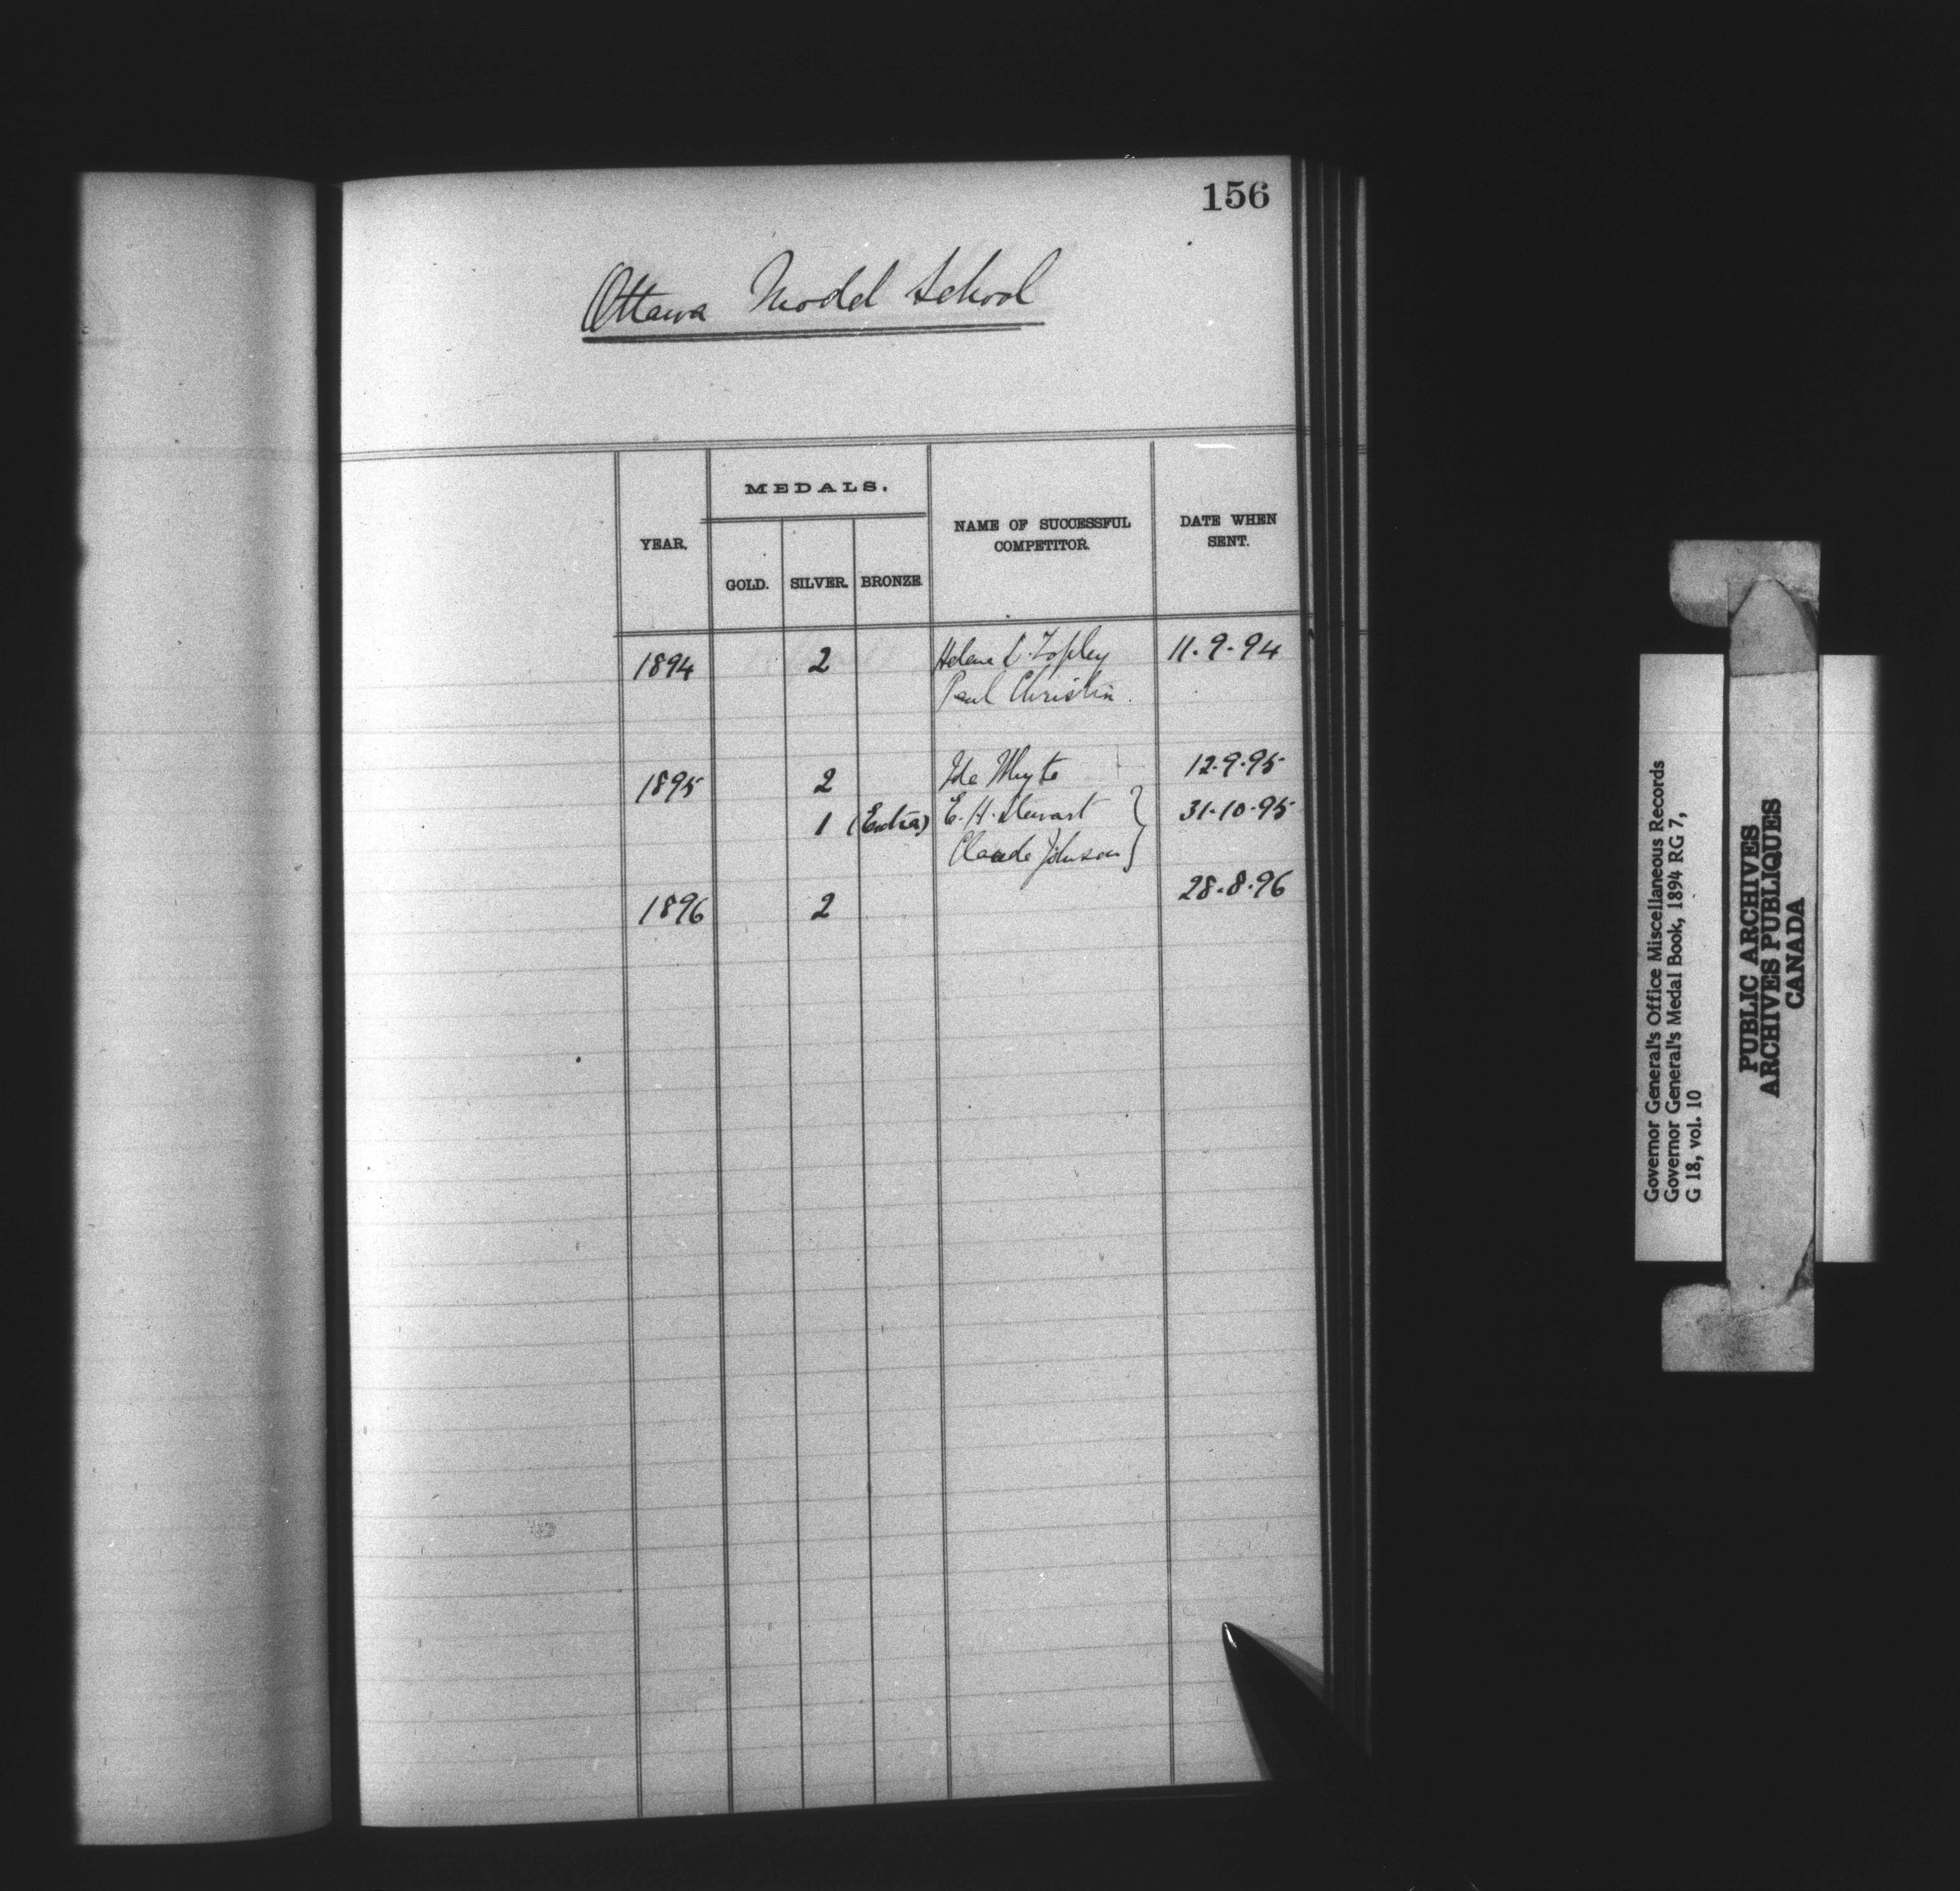 156
Ottawa Model School
YEAR.
MEDALS.
GOLD.
SILVER.
BRONZE.
NAME OF SUCCESSFUL
COMPETITOR.
DATE WHEN
SENT.
1894 2 Helena L. Topley 11.9.94
Paul Christin.
1895 2 Ida Whyte 12.9.95
1 (Extra) E. H. Stewart } 31.10.95
Claude Johnson }
1896 2 28.8.96
Governor General's Office Miscellaneous Records
Governor General's Medal Book, 1894 RG 7,
G 18, vol. 10
PUBLIC ARCHIVES
ARCHIVES PUBLIQUES
CANADA